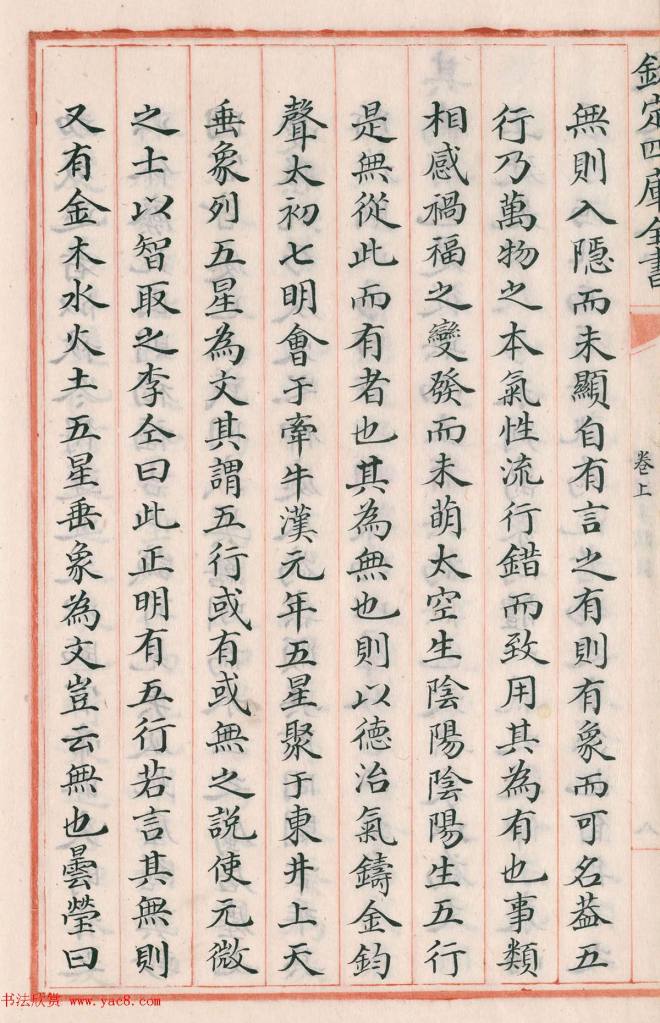 欽定四庫全書
卷上
八
無則入隱而未顯自有言之有則有象而可名葢五
行乃萬物之本氣性流行錯而致用其為有也事類
相感禍福之變發而未萌太空生陰陽陰陽生五行
是無從此而有者也其為無也則以德治氣鑄金鈞
聲太初七明會于牽牛漢元年五星聚于東井上天
垂象列五星為文其謂五行或有或無之說使元微
之士以智取之李仝曰此正明有五行若言其無則
又有金木水火土五星垂象為文豈云無也曇瑩曰
书法欣赏 www.yac8.com